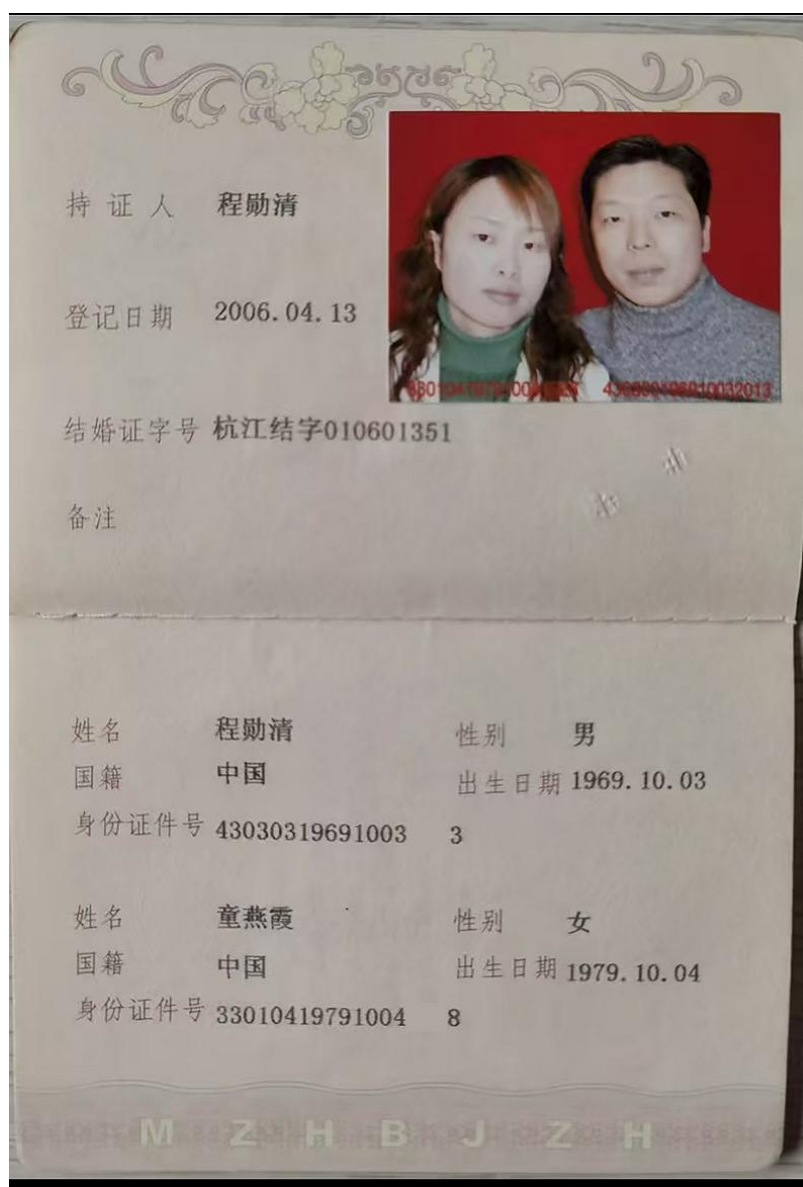 持证人 程勋清
登记日期 2006.04.13
结婚证字号 杭江结字010601351
备注
姓名 程勋清 性别 男
国籍 中国 出生日期 1969.10.03
身份证件号 43030319691003 3
姓名 童燕霞 性别 女
国籍 中国 出生日期 1979.10.04
身份证件号 33010419791004 8
M Z H B J Z H